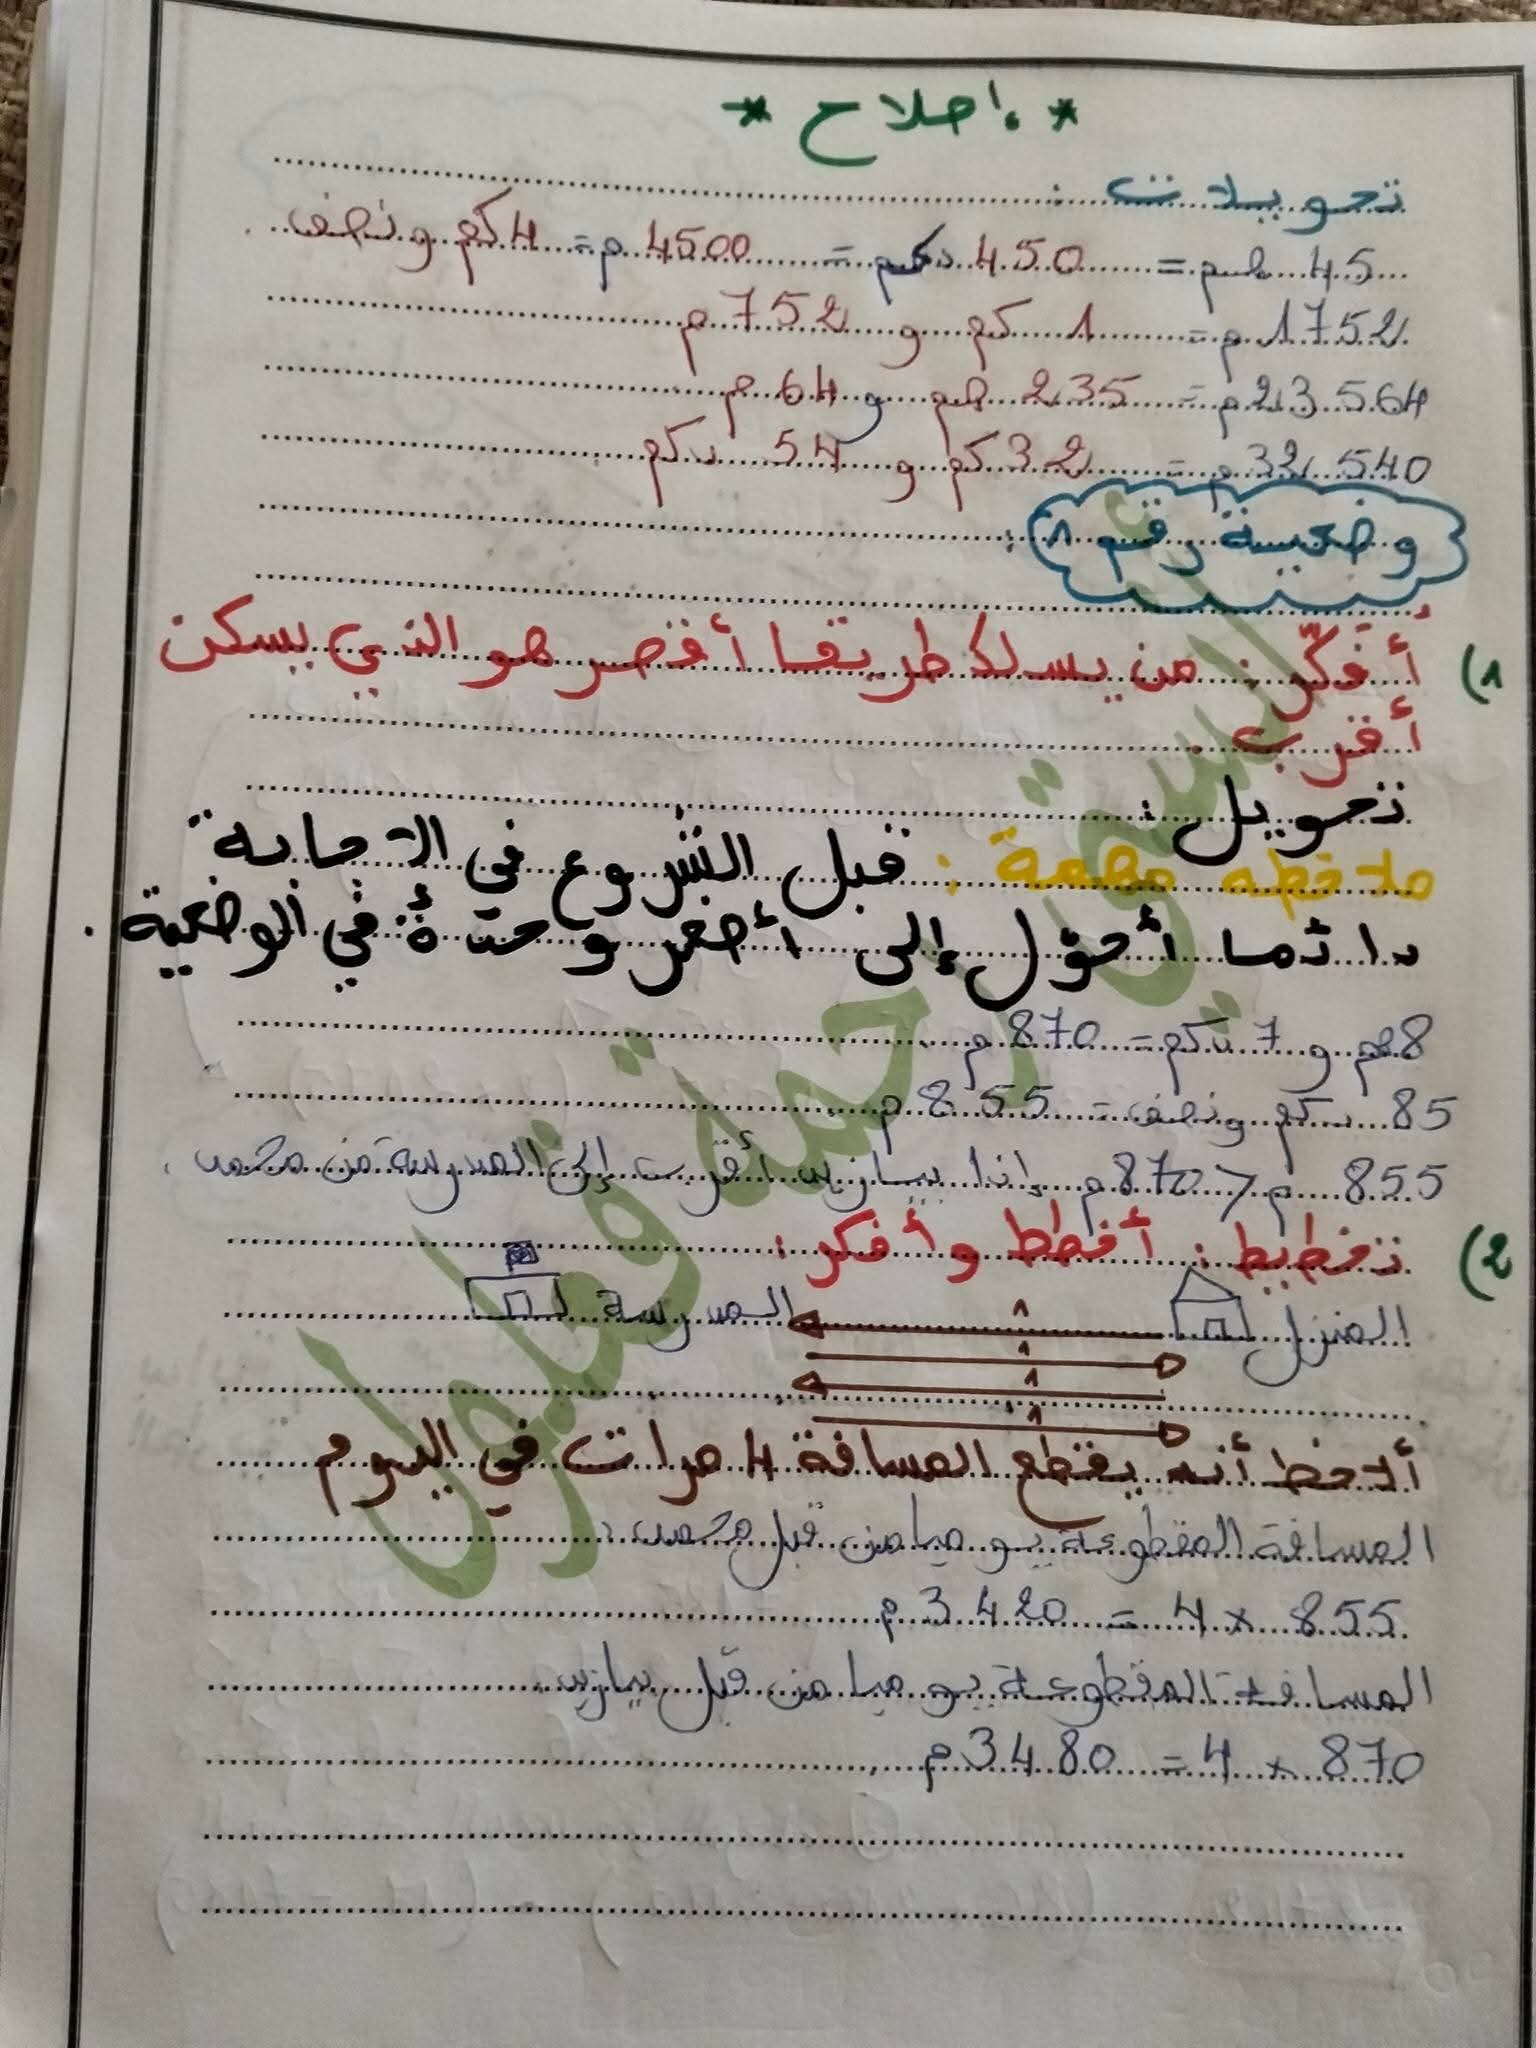 * إصلاح *
تحويلات :
45 هم = 450 دكم = 4500 م = 4 كم ونصف .
1752 م = 1 كم و 752 م
23564 م = 235 هم و 64 م
32540 م = 32 كم و 54 دكم
وضعية رقم 1 :
1) أفكّر : من يسلك طريقا أقصر هو الذي يسكن
أقرب .
تحويل :
ملاحظة مهمة : قبل الشروع في الاجابة
دائما أحوّل إلى أصغر وحدة في الوضعية .
8 هم و 7 دكم = 870 م
85 دكم ونصف = 855 م
855 م < 870 م إذا يسازيد أقرب إلى المدرسة من محمد .
2) تخطيط : أخطط وأفكر :
المنزل 1 المدرسة
1
1
1
ألاحظ أنه يقطع المسافة 4 مرات في اليوم
المسافة المقطوعة يوميا من قبل محمد :
855 × 4 = 3420 م
المسافة المقطوعة يوميا من قبل يزيد
870 × 4 = 3480 م
السيدة رحمة قطول